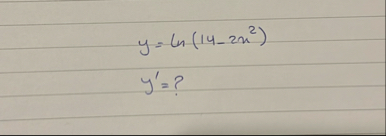 y = ln(14-2x²)
y' = ?